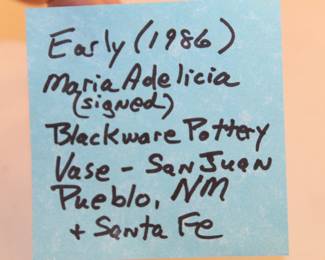 Early (1986)
Maria Adelicia
(signed)
Blackware Pottery
Vase - San Juan
Pueblo, NM
+ Santa Fe